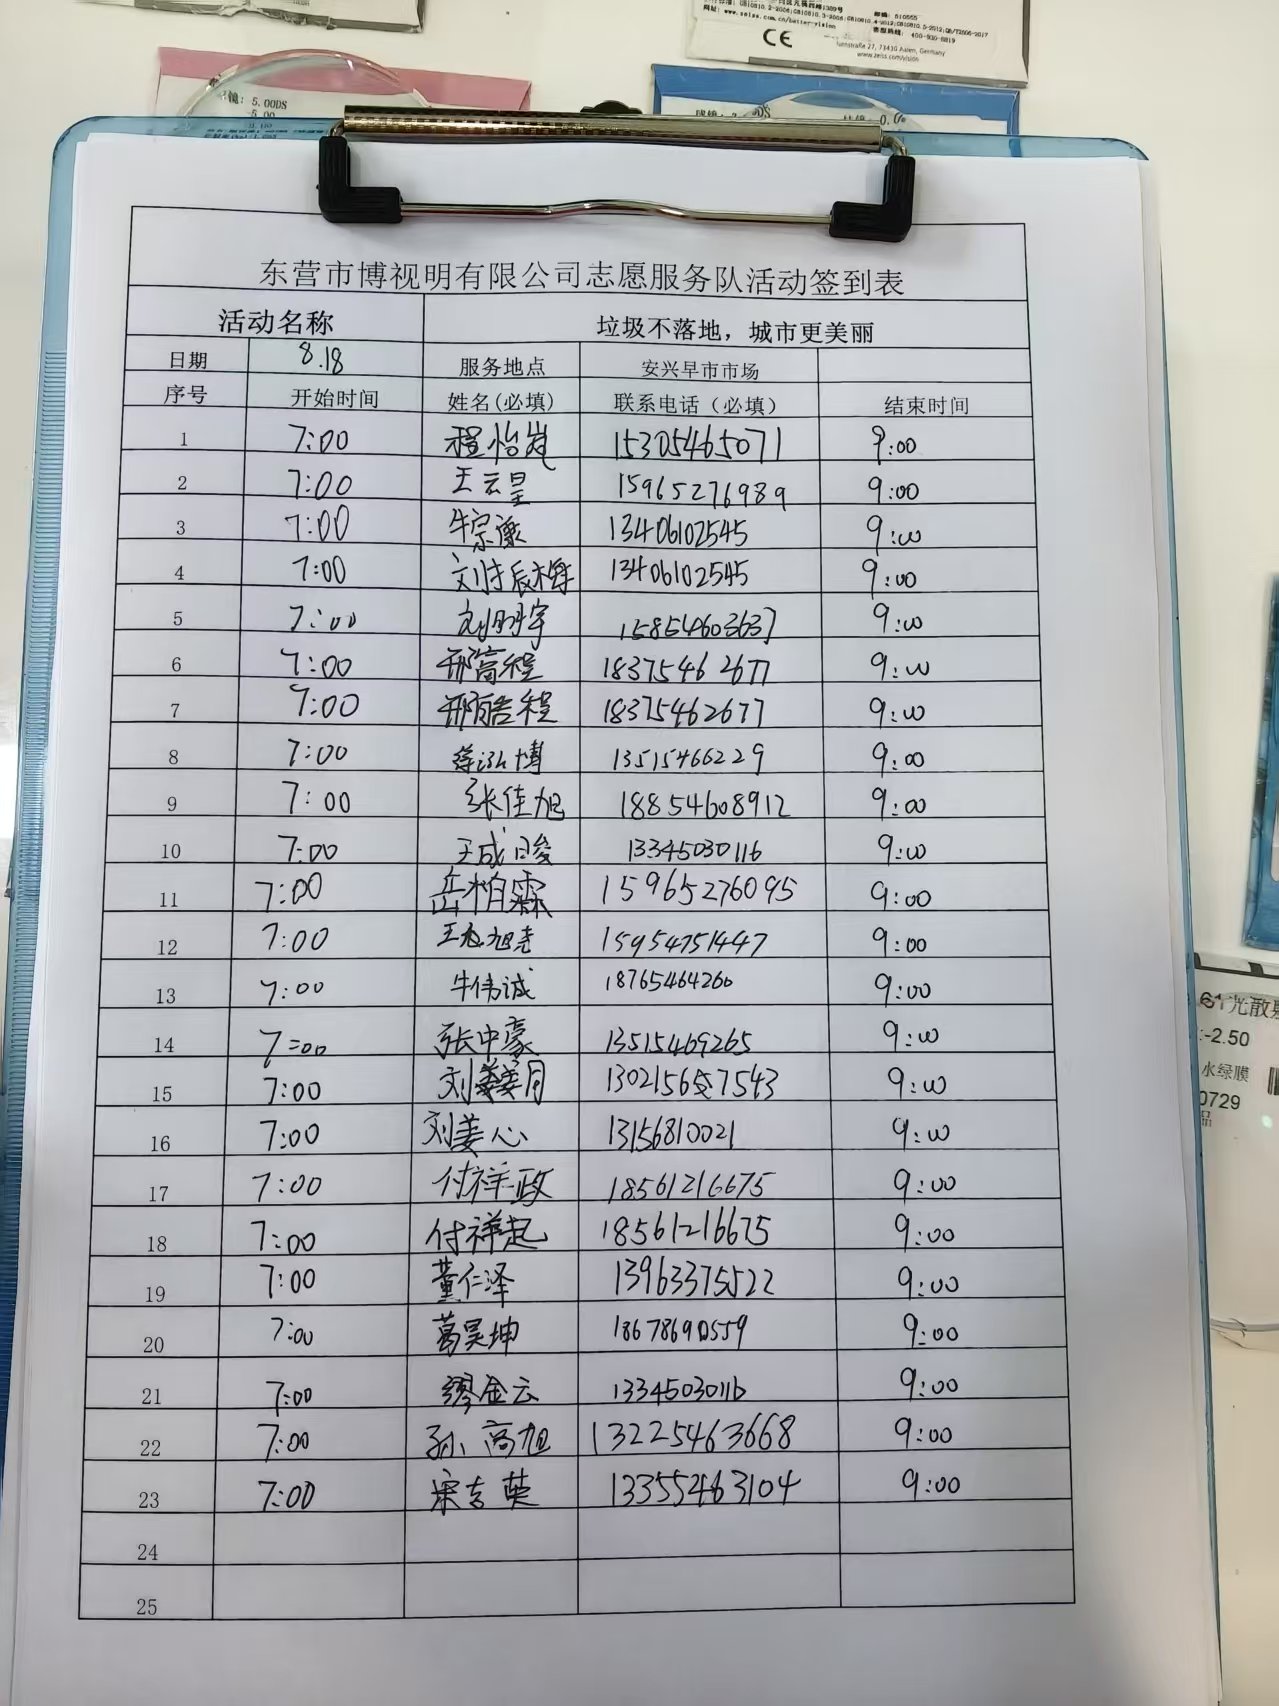 网址：www.zeiss.com.cn/better-vision
客服热线：400-930-8819
Turnstraße 27, 73430 Aalen, Germany
www.zeiss.com/vision
5.00DS
东营市博视明有限公司志愿服务队活动签到表
活动名称 垃圾不落地，城市更美丽
日期 8.18 服务地点 安兴早市市场
序号 开始时间 姓名(必填) 联系电话（必填） 结束时间
1 7:00 程怡岚 15305465071 9:00
2 7:00 王云皇 15965276989 9:00
3 7:00 牛宗康 13406102545 9:00
4 7:00 刘梓宸 13406102545 9:00
5 7:00 刘明宇 15854603637 9:00
6 7:00 邢富程 18375462677 9:00
7 7:00 邢皓程 18375462677 9:00
8 7:00 泓博 13515466229 9:00
9 7:00 张佳旭 18854608912 9:00
10 7:00 王成峻 13345030116 9:00
11 7:00 岳柏霖 15965276095 9:00
12 7:00 王旭尧 15954751447 9:00
13 7:00 牛伟诚 18765464260 9:00
14 7:00 张中豪 13515469265 9:00
15 7:00 刘姜月 13021567543 9:00
16 7:00 刘姜心 13156810021 9:00
17 7:00 付祥政 18561216675 9:00
18 7:00 付祥起 18561216675 9:00
19 7:00 董仁泽 13963375522 9:00
20 7:00 葛昊坤 18678690559 9:00
21 7:00 缪金云 13345030116 9:00
22 7:00 孙高旭 13225463668 9:00
23 7:00 宋吉英 13355463104 9:00
24
25
光散
-2.50
水绿膜
0729
品